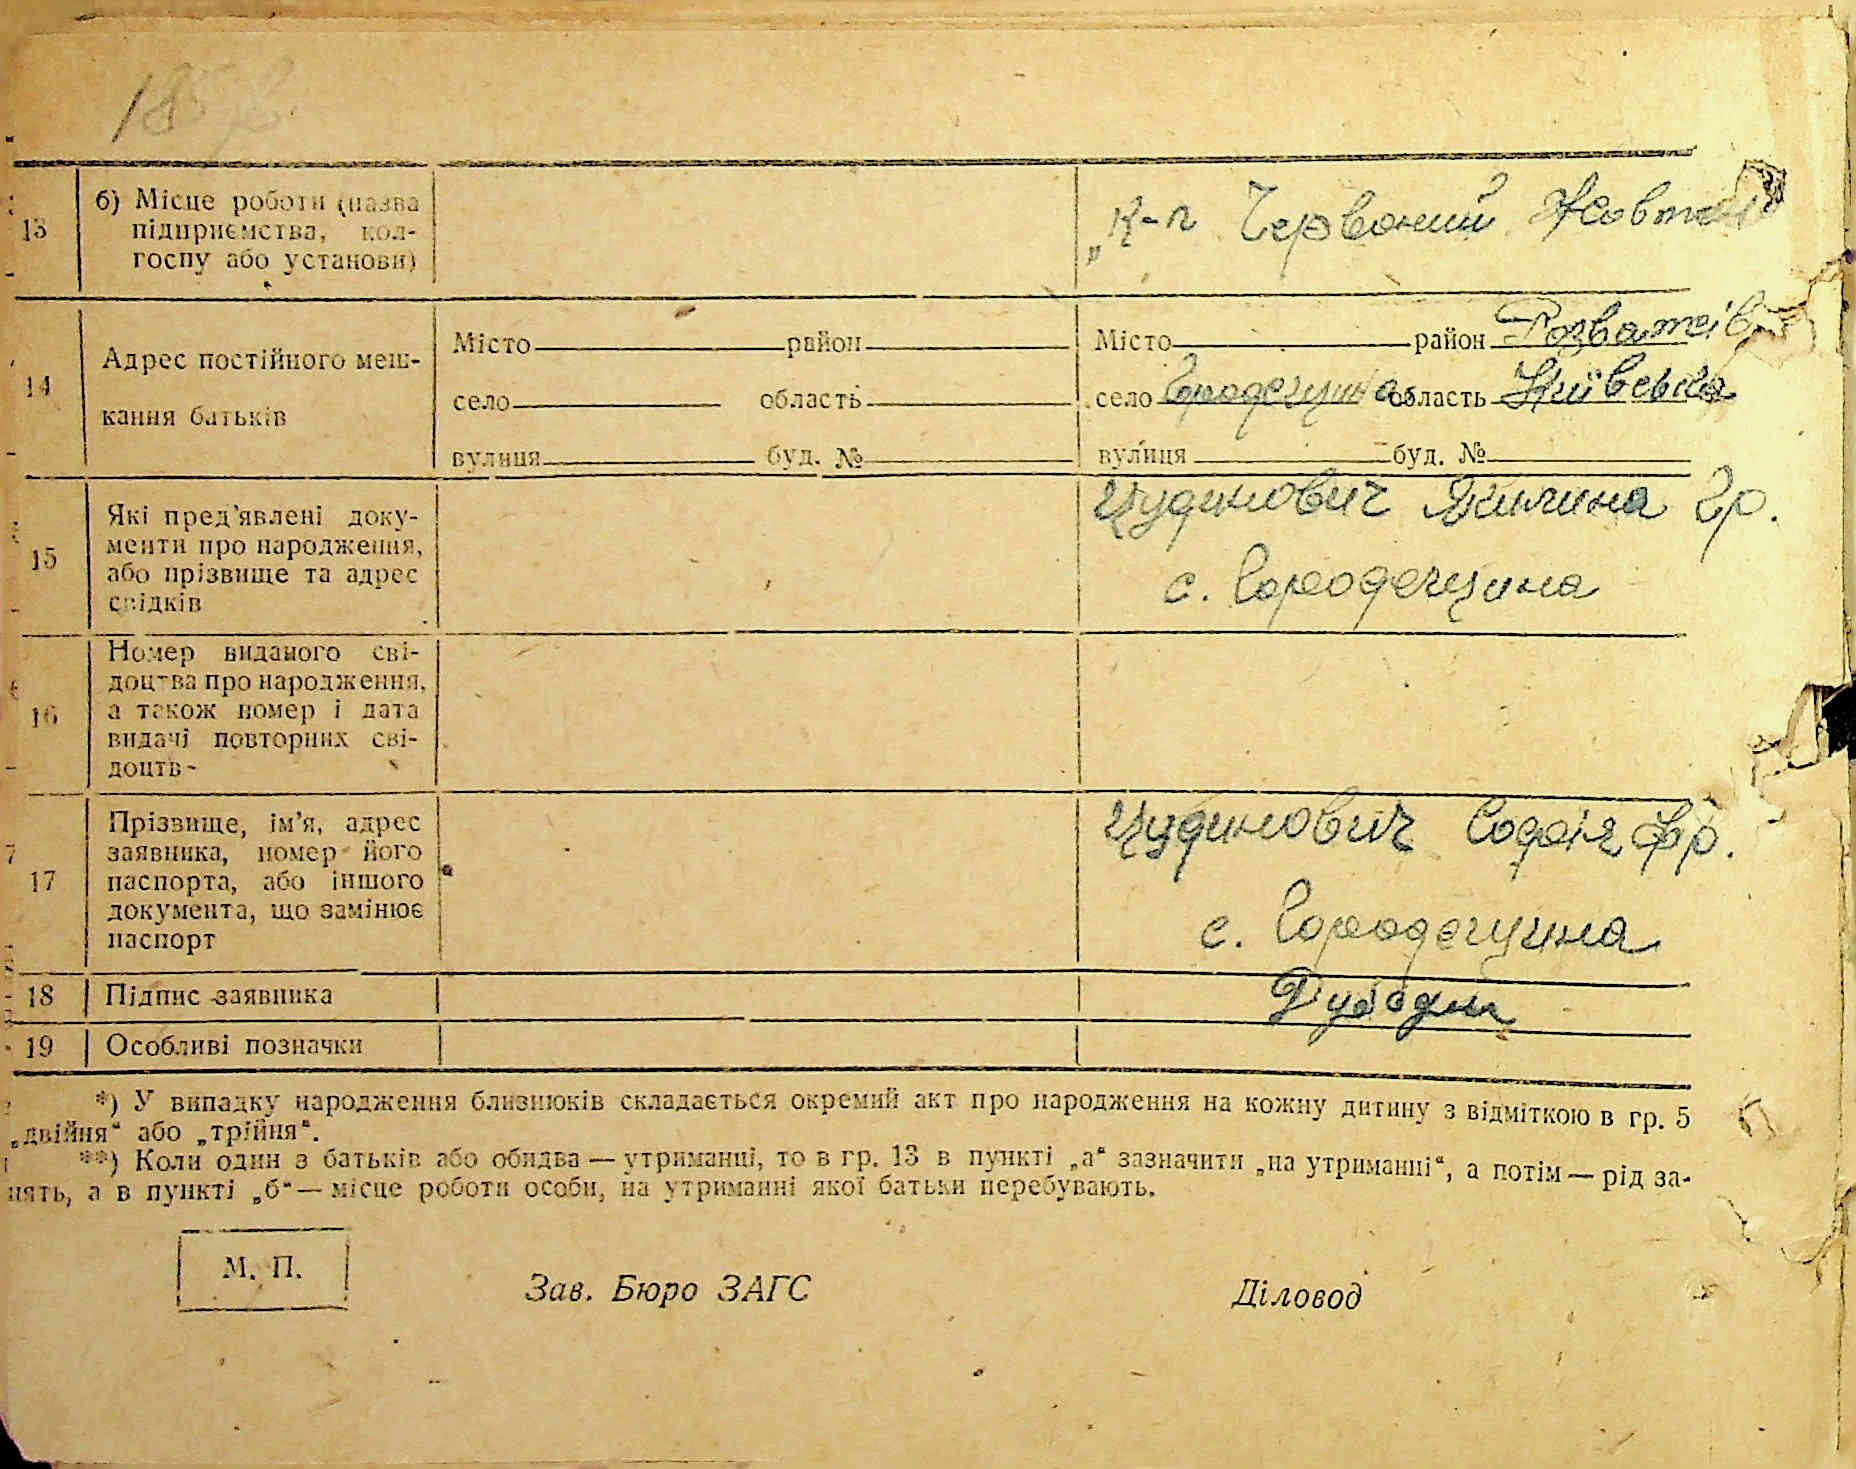 13
б) Місце роботи (назва
підприємства, кол-
госпу або установи)
„К-п Червоний Жовтень
14
Адрес постійного меш-
кання батьків
Місто район
село область
вулиця буд. №
Місто район Розважів
село Городещина область Київська
вулиця буд. №
15
Які пред’явлені доку-
менти про народження,
або прізвище та адрес
свідків
Чудинович Гр.
с. Городещина
16
Номер виданого сві-
доцтва про народження,
а також номер і дата
видачі повторних сві-
доцтв-
17
Прізвище, ім’я, адрес
заявника, номер його
паспорта, або іншого
документа, що замінює
паспорт
Чудинович Софія Фр.
с. Городещина
18 Підпис заявника
19 Особливі позначки
*) У випадку народження близнюків складається окремий акт про народження на кожну дитину з відміткою в гр. 5
„двійня“ або „трійня“.
**) Коли один з батьків або обидва — утриманці, то в гр. 13 в пункті „а“ зазначити „на утриманні“, а потім — рід за-
нять, а в пункті „б“ — місце роботи особи, на утриманні якої батьки перебувають.
М. П.
Зав. Бюро ЗАГС
Діловод